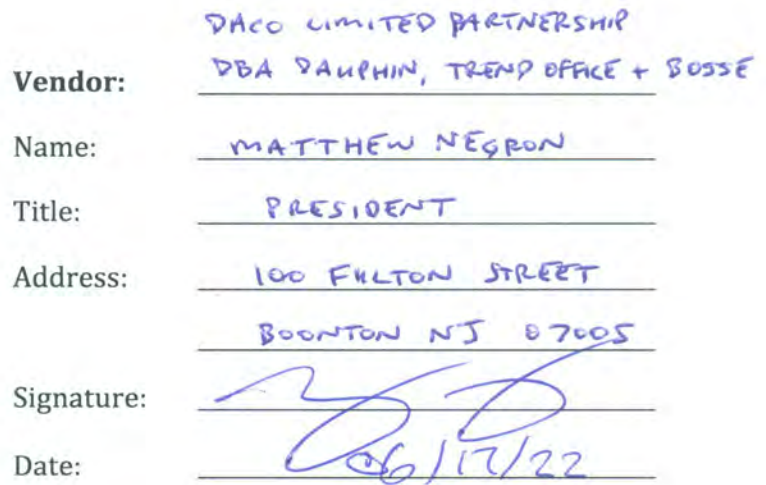 DACO LIMITED PARTNERSHIP
Vendor: DBA DAUPHIN, TREND OFFICE + BOSSE
Name: MATTHEW NEGRON
Title: PRESIDENT
Address: 100 FULTON STREET
BOONTON NJ 07005
Signature:
Date: 06/17/22